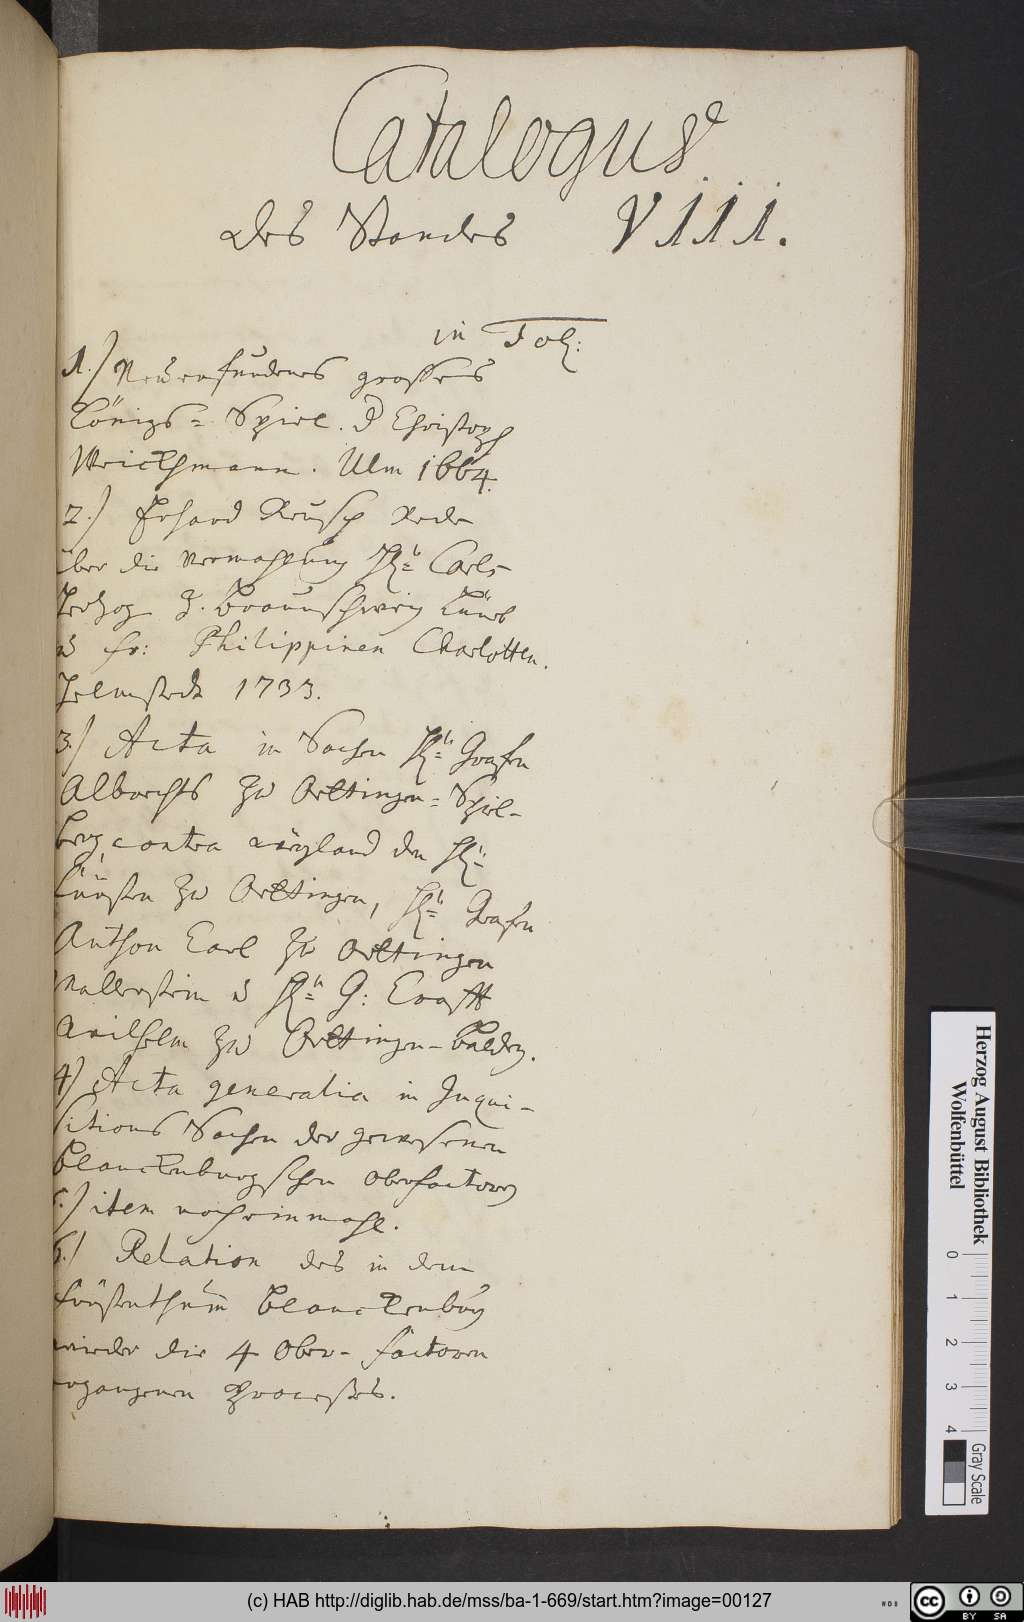 Catalogus
des Standes VIII.
in Fol:
1.) Neuerfundenes grosses
Königs= Spiel. d Christoph
Weickhmann. Ulm 1664.
2.) Erhard Reusch Rede
über die Vermahlung Hn= Carls
Hertzog z. Braunschweig Lüneb
u fr: Philippinen Charlotten.
Helmstedt 1733.
3.) Acta in Sachen Hn= Grafen
Albrechts zu Oettingen= Spiel-
berg, contra weyland den Hn=
Fürsten zu Oettingen, Hn= Grafen
Anthon Carl zu Oettingen
Wallerstein u Hn= G: Crafft
Wilhelm zu Oettingen-Baldern.
4.) Acta generalia in Inqui-
sitions Sachen der gewesenen
Blanckenburgschen Oberfactorey
5.) item noch einmahl.
6.) Relation des in dem
Fürstenthum Blanckenburg
wieder die 4 Ober- factoren
ergangenen Processes.
Herzog August Bibliothek
Wolfenbüttel
0 1 2 3 4
Gray Scale
(c) HAB http://diglib.hab.de/mss/ba-1-669/start.htm?image=00127
WDB
cc BY SA